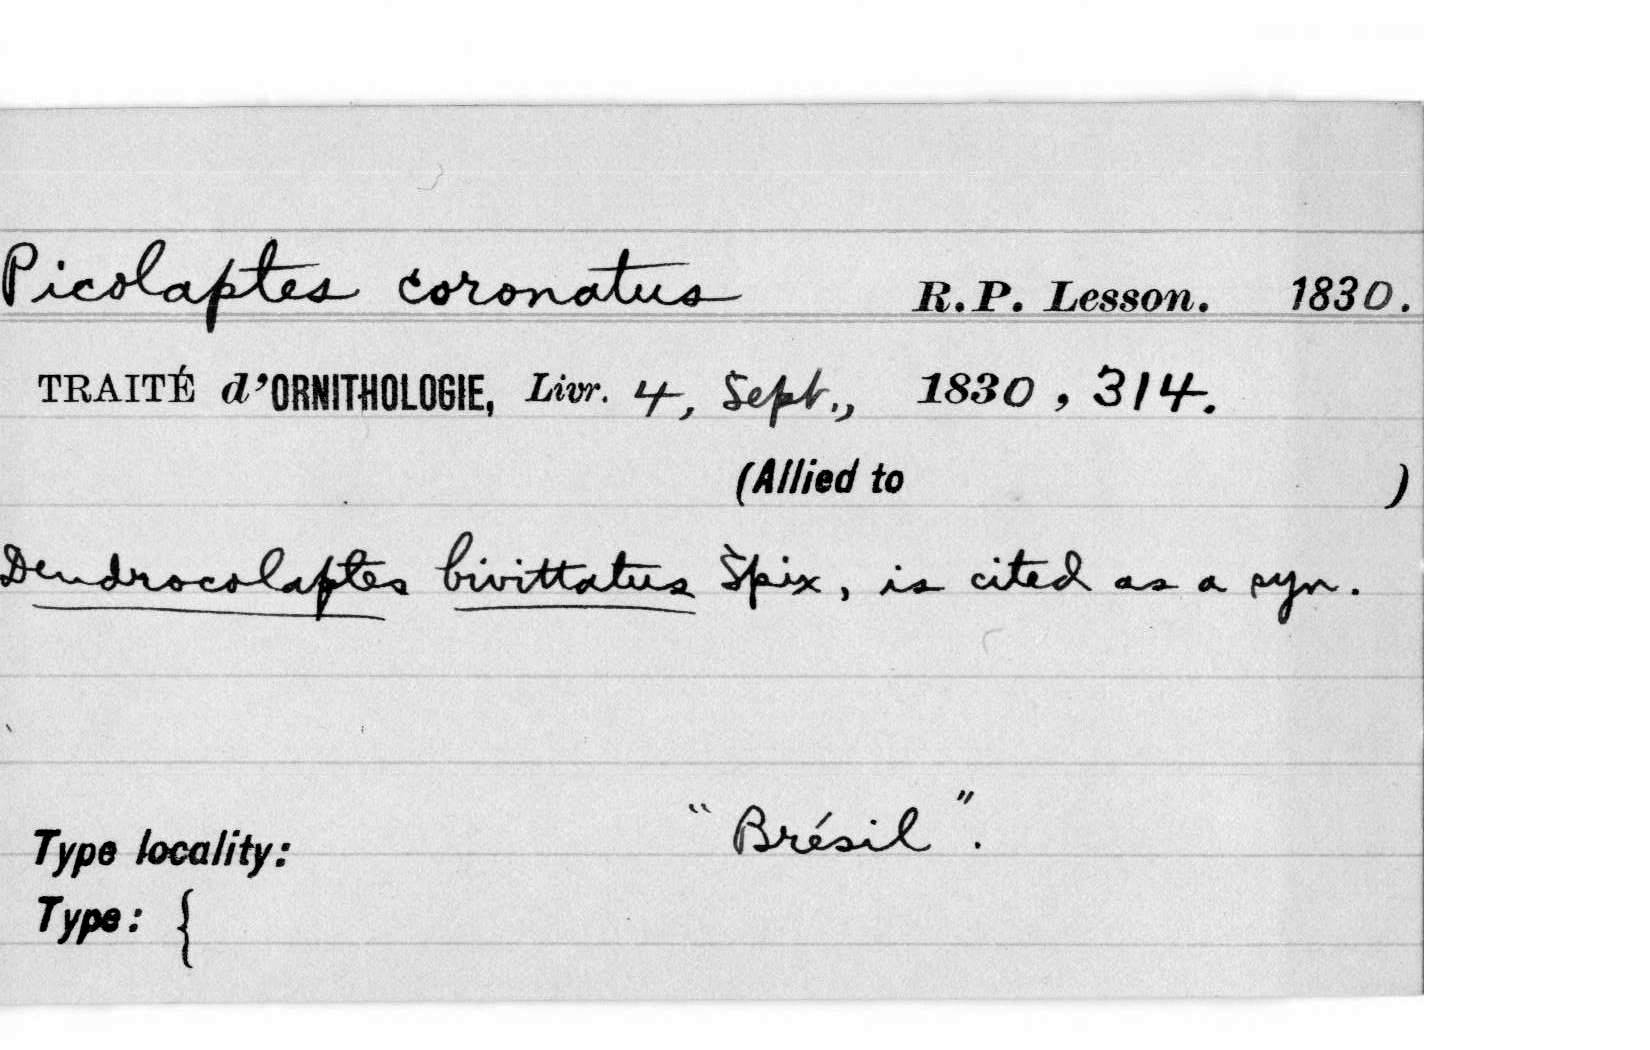 Picolaptes coronatus R.P. Lesson. 1830.
TRAITÉ d'ORNITHOLOGIE, Livr. 4, Sept., 1830, 314.
(Allied to )
Dendrocolaptes bivittatus Spix, is cited as a syn.
Type locality: "Brésil".
Type: {